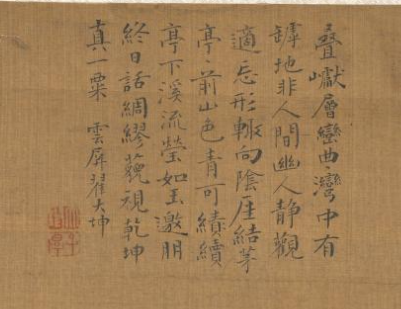 疊巘層巒曲灣中有
罅地非人間幽人靜觀
適忘形輙向陰厓結茅
亭亭前山色青可續續
亭下溪流瑩如玉邀朋
終日話綢繆藐視乾坤
真一粟 雲屏翟大坤